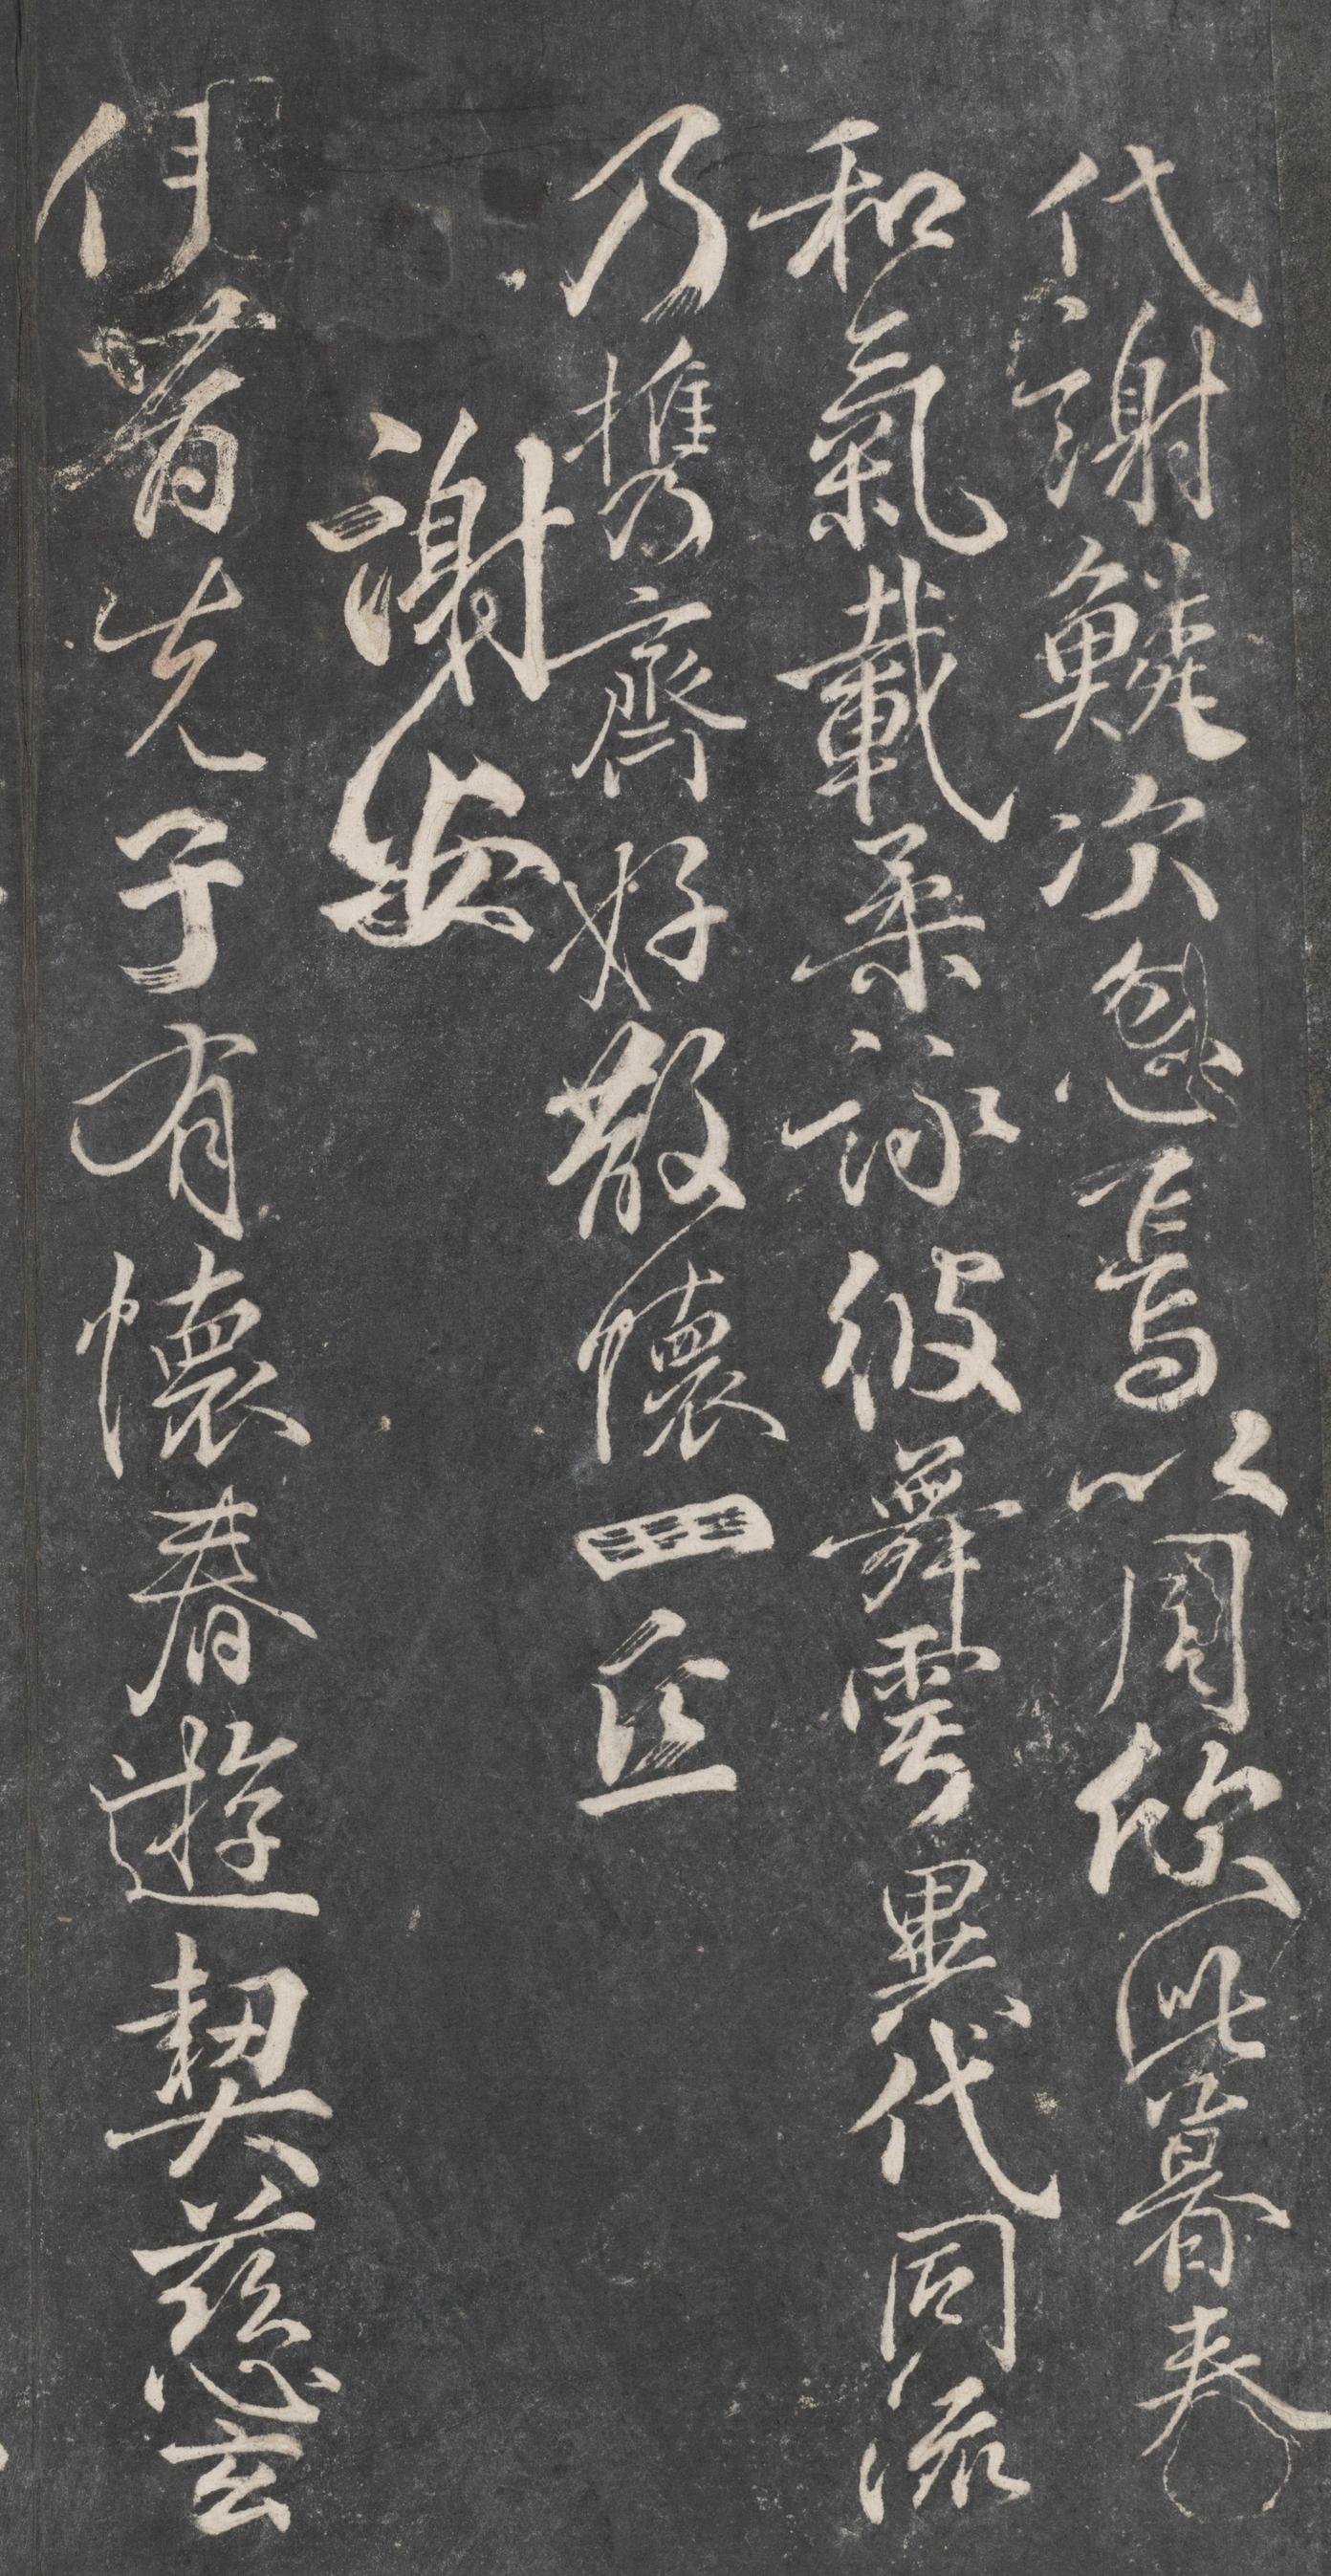 代謝鱗次忽焉以周欣此暮春
和氣載柔詠彼舞雩異代同流
乃携齊好散懷一丘
謝安
伊昔先子有懷春遊契慈玄